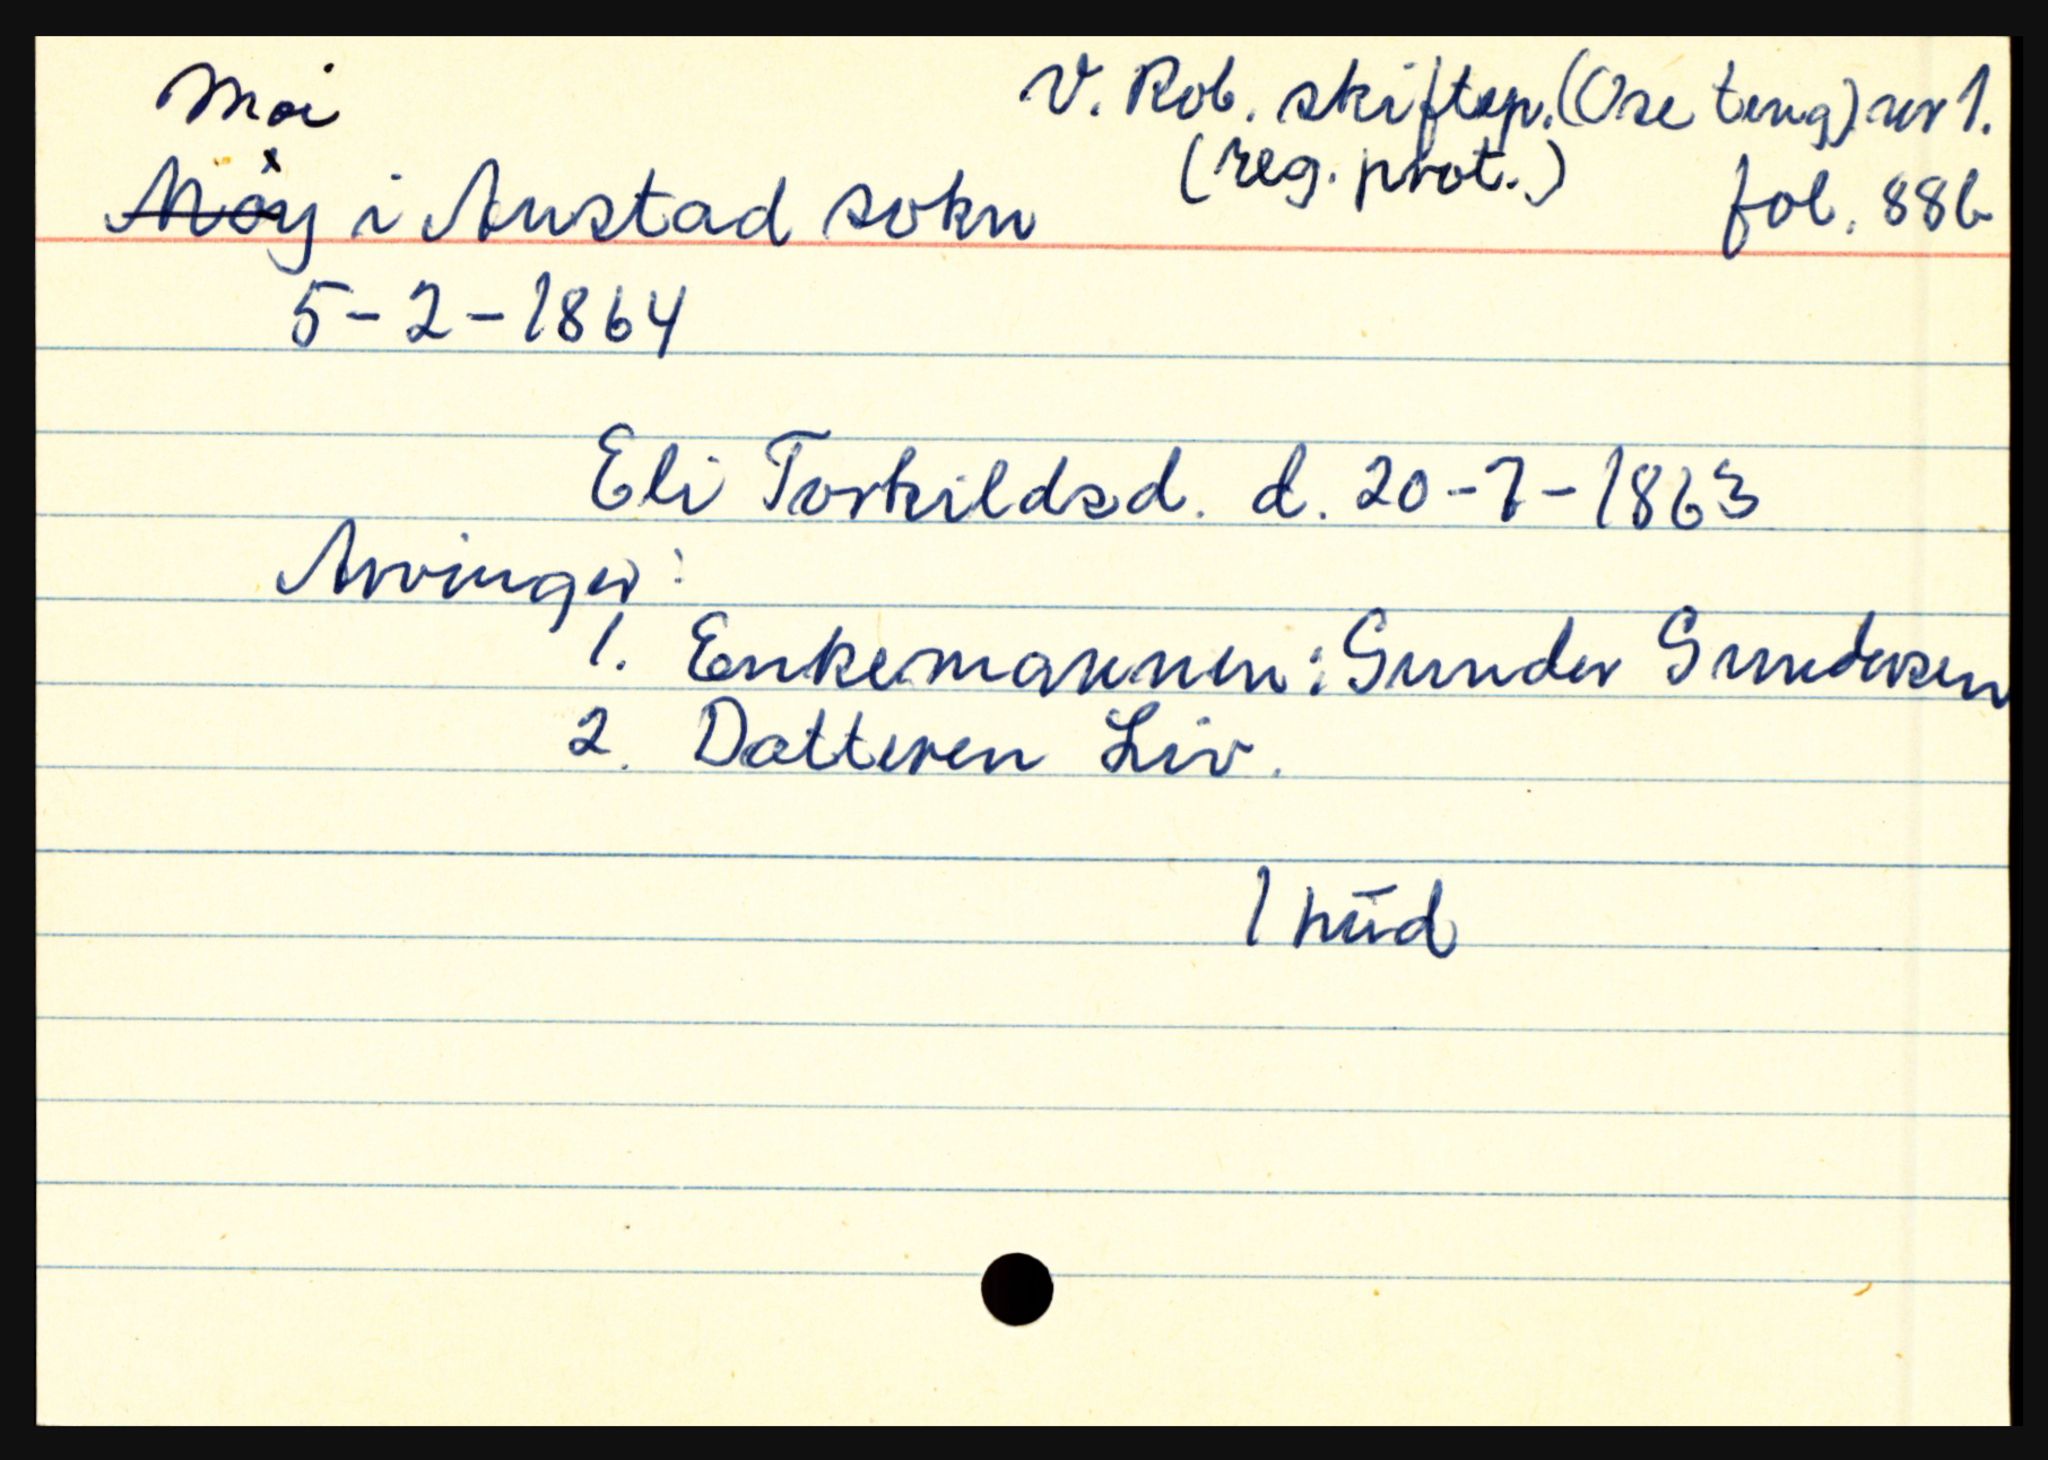 Moi
V. Rob. skiftep. (Ose ting) nr 1.
(reg. prot.)
Möy i Austad sokn
fol. 88b
5-2-1864
Eli Torkildsd. d. 20-7-1863
Arvinger:
1. Enkemannen: Gunder Gundersen
2. Datteren Liv.
1 hūd